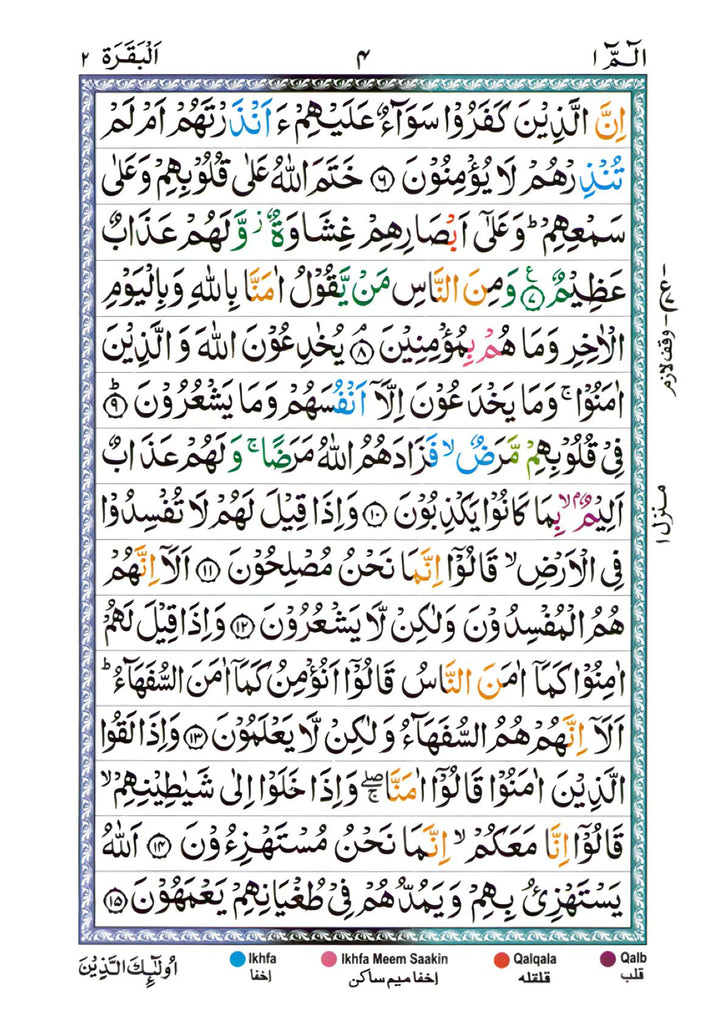 الٓمّٓ ١
۴
اَلْبَقَرَة ٢
اِنَّ الَّذِيْنَ كَفَرُوْا سَوَآءٌ عَلَيْهِمْ ءَاَنْذَرْتَهُمْ اَمْ لَمْ
تُنْذِرْهُمْ لَا يُؤْمِنُوْنَ ۶ خَتَمَ اللّٰهُ عَلٰى قُلُوْبِهِمْ وَعَلٰى
سَمْعِهِمْ ؕ وَعَلٰٓى اَبْصَارِهِمْ غِشَاوَةٌ ؗ وَّلَهُمْ عَذَابٌ
عَظِيْمٌ ۷ ع وَمِنَ النَّاسِ مَنْ يَّقُوْلُ اٰمَنَّا بِاللّٰهِ وَبِالْيَوْمِ
الْاٰخِرِ وَمَا هُمْ بِمُؤْمِنِيْنَ ۸ يُخٰدِعُوْنَ اللّٰهَ وَالَّذِيْنَ
اٰمَنُوْا ۚ وَمَا يَخْدَعُوْنَ اِلَّاۤ اَنْفُسَهُمْ وَمَا يَشْعُرُوْنَ ۹ ؕ
فِىْ قُلُوْبِهِمْ مَّرَضٌ ۙ فَزَادَهُمُ اللّٰهُ مَرَضًا ۚ وَلَهُمْ عَذَابٌ
اَلِيْمٌ ۢ ۙ بِمَا كَانُوْا يَكْذِبُوْنَ ۱۰ وَاِذَا قِيْلَ لَهُمْ لَا تُفْسِدُوْا
فِى الْاَرْضِ ۙ قَالُوْۤا اِنَّمَا نَحْنُ مُصْلِحُوْنَ ۱۱ اَلَاۤ اِنَّهُمْ
هُمُ الْمُفْسِدُوْنَ وَلٰكِنْ لَّا يَشْعُرُوْنَ ۱۲ وَاِذَا قِيْلَ لَهُمْ
اٰمِنُوْا كَمَاۤ اٰمَنَ النَّاسُ قَالُوْۤا اَنُؤْمِنُ كَمَاۤ اٰمَنَ السُّفَهَآءُ ؕ
اَلَاۤ اِنَّهُمْ هُمُ السُّفَهَآءُ وَلٰكِنْ لَّا يَعْلَمُوْنَ ۱۳ وَاِذَا لَقُوا
الَّذِيْنَ اٰمَنُوْا قَالُوْۤا اٰمَنَّا ۖۚ وَاِذَا خَلَوْا اِلٰى شَيٰطِيْنِهِمْ ۙ
قَالُوْۤا اِنَّا مَعَكُمْ ۙ اِنَّمَا نَحْنُ مُسْتَهْزِءُوْنَ ۱۴ اَللّٰهُ
يَسْتَهْزِئُ بِهِمْ وَيَمُدُّهُمْ فِىْ طُغْيَانِهِمْ يَعْمَهُوْنَ ۱۵
ع وقف لازم
منزل ١
اُولٰٓئِكَ الَّذِيْنَ
Ikhfa اخفا
Ikhfa Meem Saakin اخفا میم ساکن
Qalqala قلقله
Qalb قلب